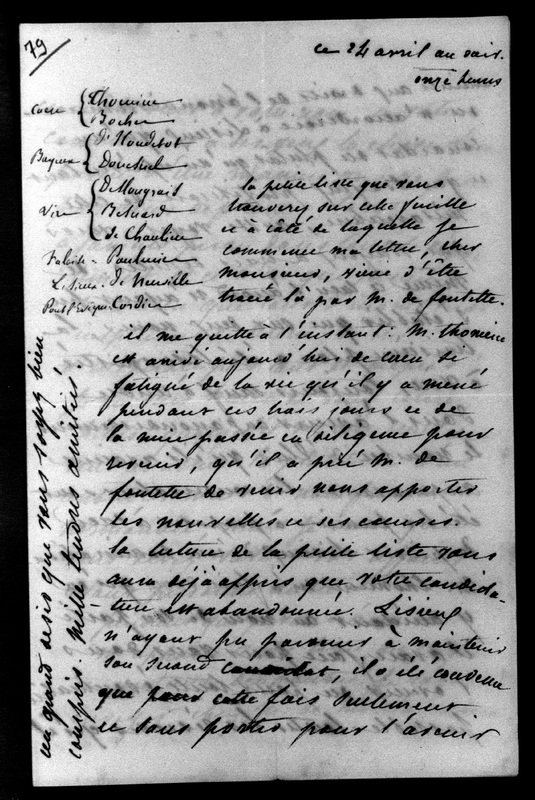 79
ce 24 avril au soir.
onze heures
Caen { Thomine
Bocher
Bayeux { d'Houdetot
Douesnel
Vire { De Mougrait
Besnard
de Chaulieu
Falaise - Paulmier
Lisieux. de Neuville
Pont l'Evêque Cordier
la petite liste que vous
trouverez sur cette feuille
et à côté de laquelle je
commence ma lettre, cher
monsieur, vient d'être
tracé là par M. de fontette.
il me quitte à l'instant. M. thomine
est arrivé aujourd'hui de caen si
fatigué de la vie qu'il y a mené
pendant ces trois jours et de
la nuit passée en diligence pour
revenir, qu'il a prié M. de
fontette de venir nous apporter
les nouvelles et ses excuses.
la lecture de la petite liste vous
aura déjà appris que votre candida-
-ture est abandonnée. Lisieux
n'ayant pu parvenir à maintenir
son second candidat, il a été convenu
que pour cette fois seulement
et sans porter pour l'avenir
un grand désir que vous soyez bien
compris. Mille tendres amitiés.